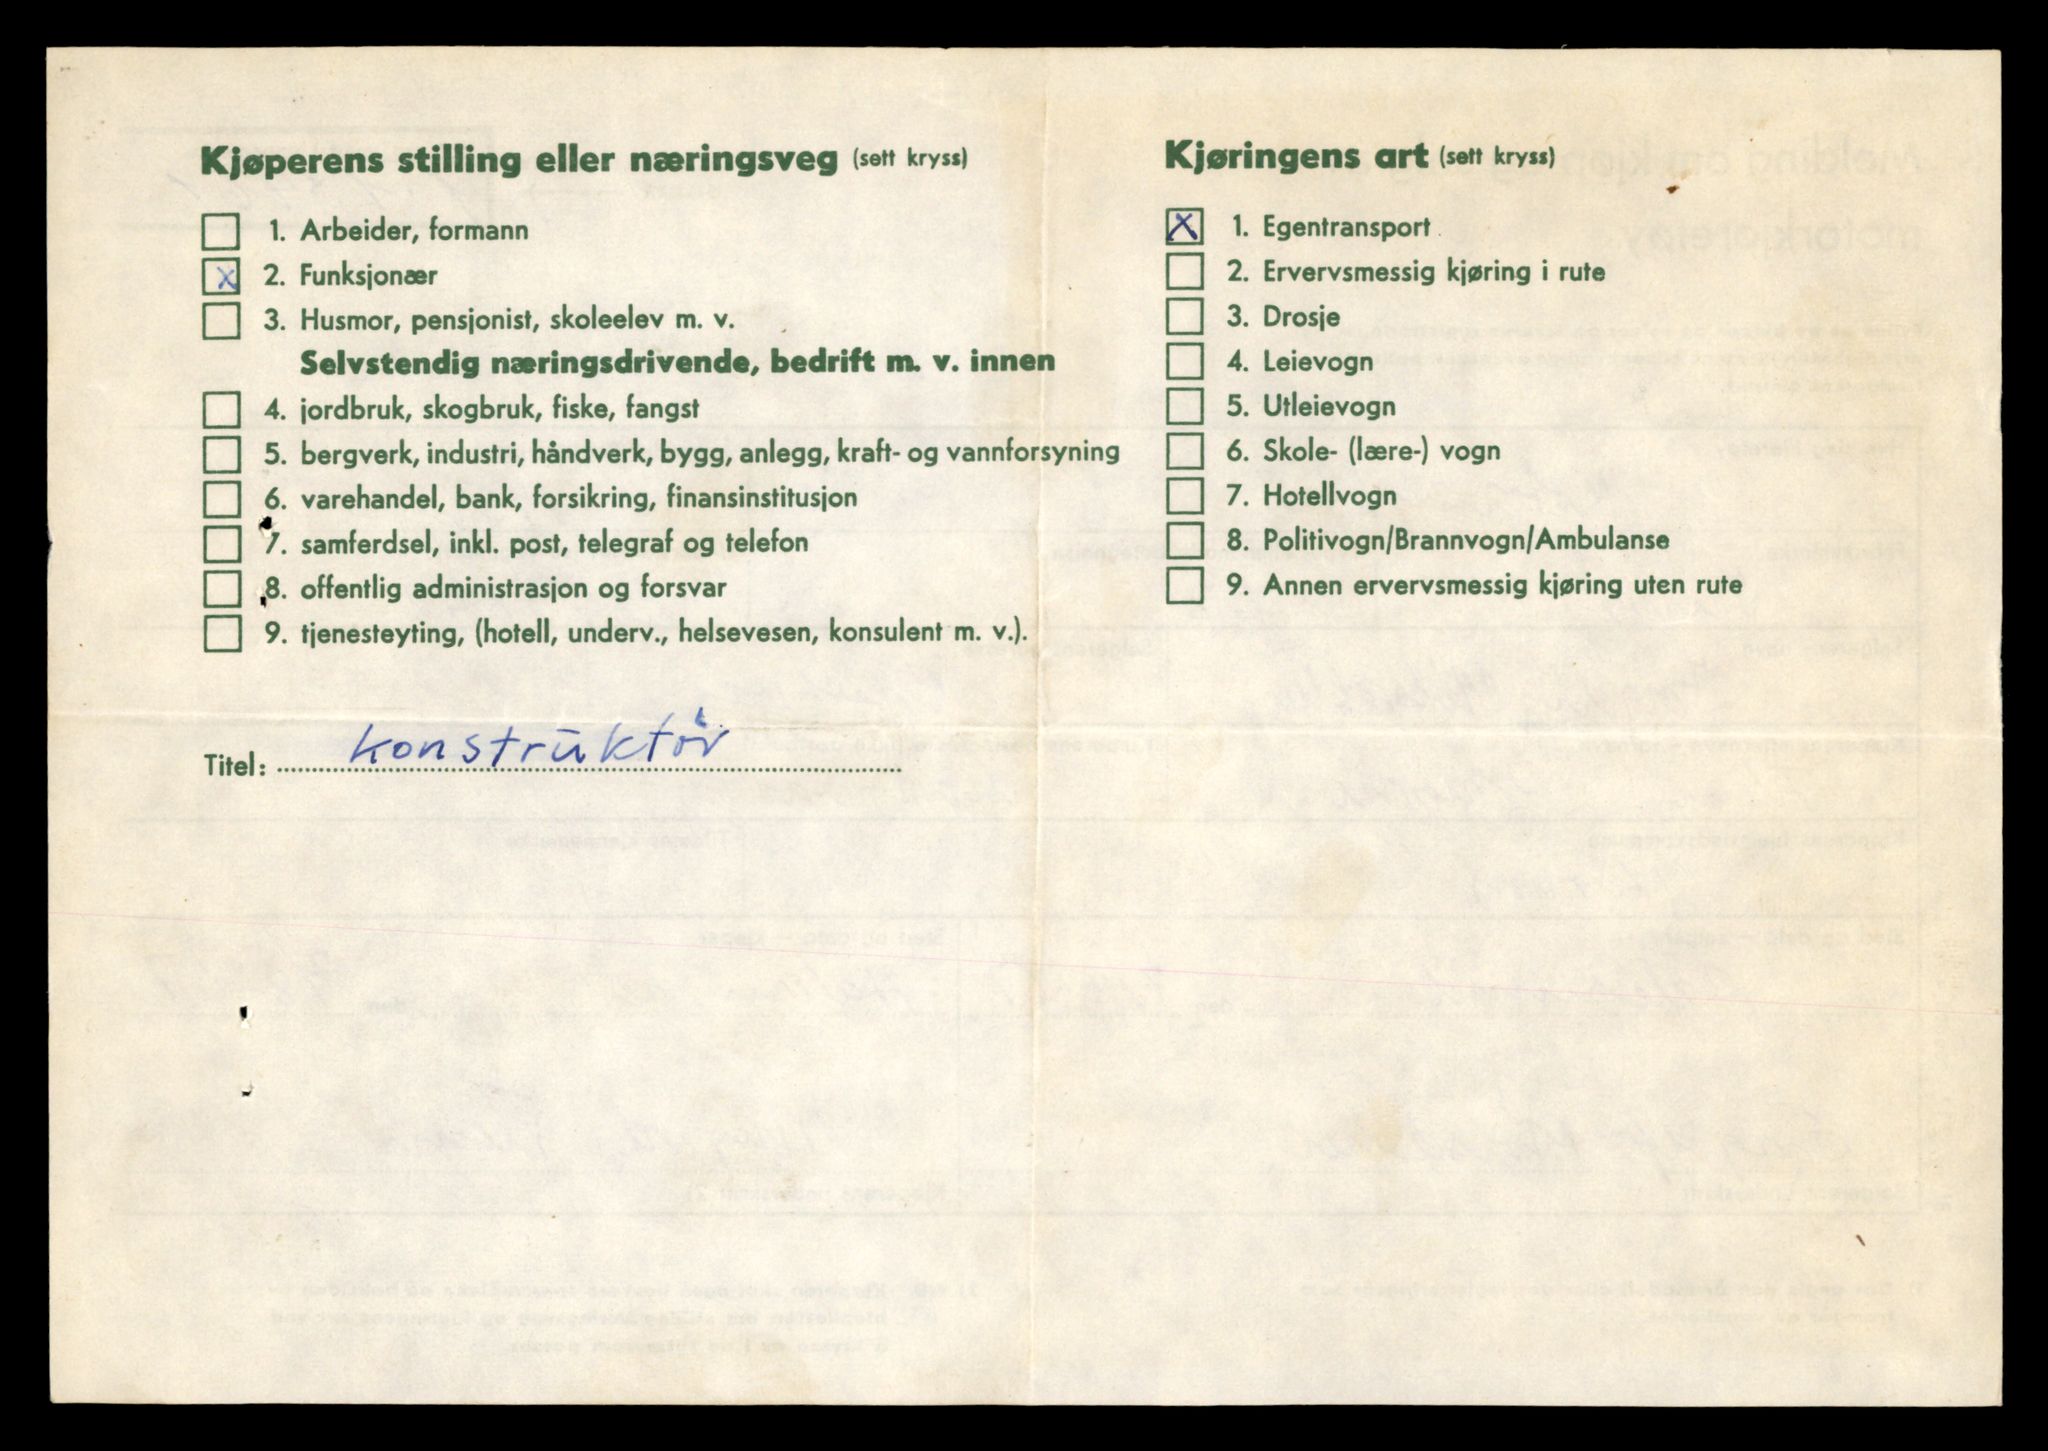 Kjøperens stilling eller næringsveg (sett kryss)
1. Arbeider, formann
X 2. Funksjonær
3. Husmor, pensjonist, skoleelev m. v.
Selvstendig næringsdrivende, bedrift m. v. innen
4. jordbruk, skogbruk, fiske, fangst
5. bergverk, industri, håndverk, bygg, anlegg, kraft- og vannforsyning
6. varehandel, bank, forsikring, finansinstitusjon
7. samferdsel, inkl. post, telegraf og telefon
8. offentlig administrasjon og forsvar
9. tjenesteyting, (hotell, underv., helsevesen, konsulent m. v.).
Titel: konstruktör
Kjøringens art (sett kryss)
X 1. Egentransport
2. Ervervsmessig kjøring i rute
3. Drosje
4. Leievogn
5. Utleievogn
6. Skole- (lære-) vogn
7. Hotellvogn
8. Politivogn/Brannvogn/Ambulanse
9. Annen ervervsmessig kjøring uten rute